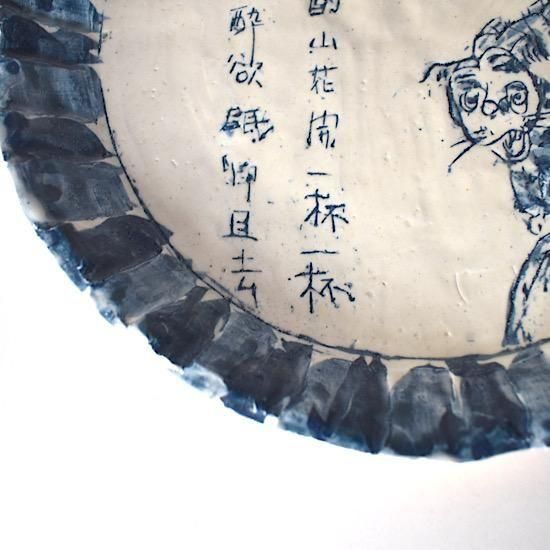 酌山花開一杯一杯
醉欲眠卿且去